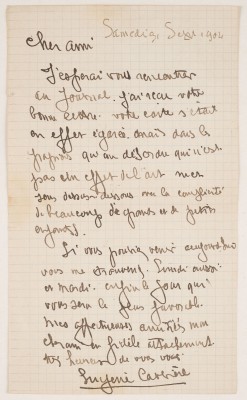 Samedi 3 Sept. 1904
cher ami
J'espérais vous rencontrer
au Journal. j'ai reçu votre
bonne lettre. votre carte s'était
en effet égarée. mais dans les
papiers qu'un désordre qui n'est
pas un effet de l'art met
sens dessus dessous
de beaucoup de grands et de petits
enfants.
Si vous pouviez venir aujourd'hui
vous me trouverez. Lundi aussi
et mardi. enfin le jour qui
vous sera le plus favorable.
mes affectueuses amitiés mon
cher ami en fidèle attachement
très heureux de vous voir.
Eugène Carrière